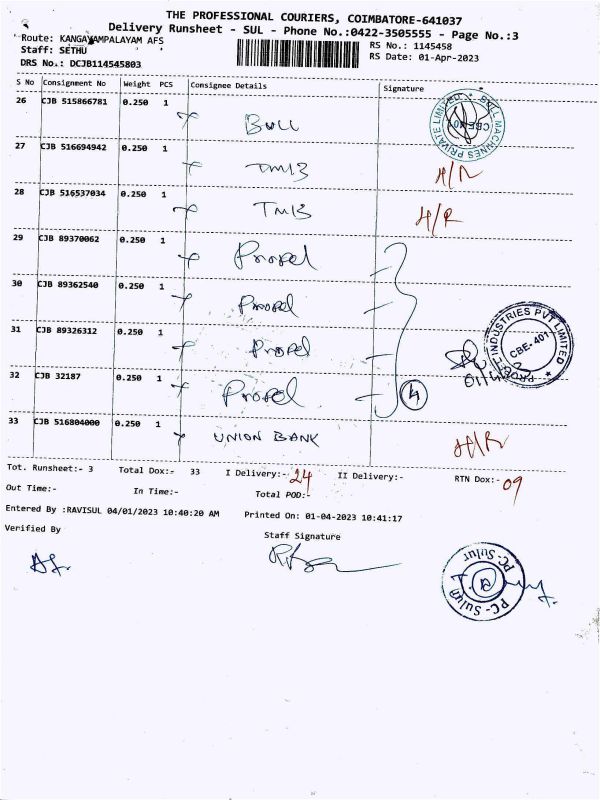 THE PROFESSIONAL COURIERS, COIMBATORE-641037
Delivery Runsheet - SUL - Phone No.:0422-3505555 - Page No.:3
Route: KANGAYAMPALAYAM AFS
RS No.: 1145458
Staff: SETHU
RS Date: 01-Apr-2023
DRS No.: DCJB114545803
S No Consignment No Weight PCS Consignee Details Signature
26 CJB 515866781 0.250 1
BULL
BULL MACHINES PRIVATE LIMITED
CBE-401
27 CJB 516694942 0.250 1
TMB H/R
28 CJB 516537034 0.250 1
TMB H/R
29 CJB 89370062 0.250 1
Propel
30 CJB 89362540 0.250 1
Propel
31 CJB 89326312 0.250 1
Propel
INDUSTRIES PVT LIMITED
CBE-401
32 CJB 32187 0.250 1
Propel 4
33 CJB 516804000 0.250 1
UNION BANK H/R
Tot. Runsheet:- 3 Total Dox:- 33 I Delivery:- 24 II Delivery:- RTN Dox:- 09
Out Time:- In Time:- Total POD:-
Entered By :RAVISUL 04/01/2023 10:40:20 AM Printed On: 01-04-2023 10:41:17
Verified By Staff Signature
PC-Sulur
PC-Sulur